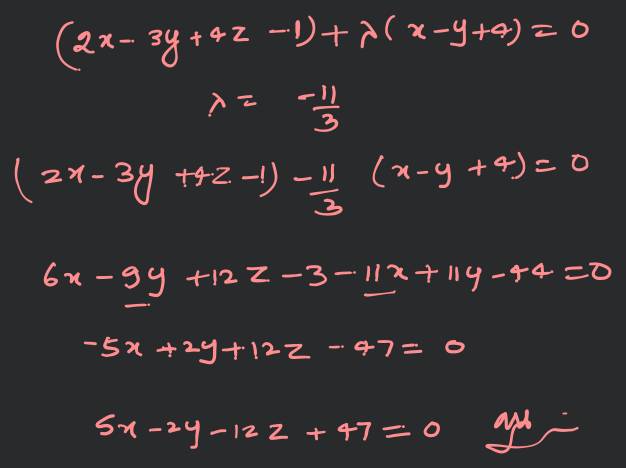 (2x - 3y + 4z - 1) + λ(x - y + 4) = 0
λ = -11/3
(2x - 3y + 4z - 1) - 11/3 (x - y + 4) = 0
6x - 9y + 12z - 3 - 11x + 11y - 44 = 0
-5x + 2y + 12z - 47 = 0
5x - 2y - 12z + 47 = 0